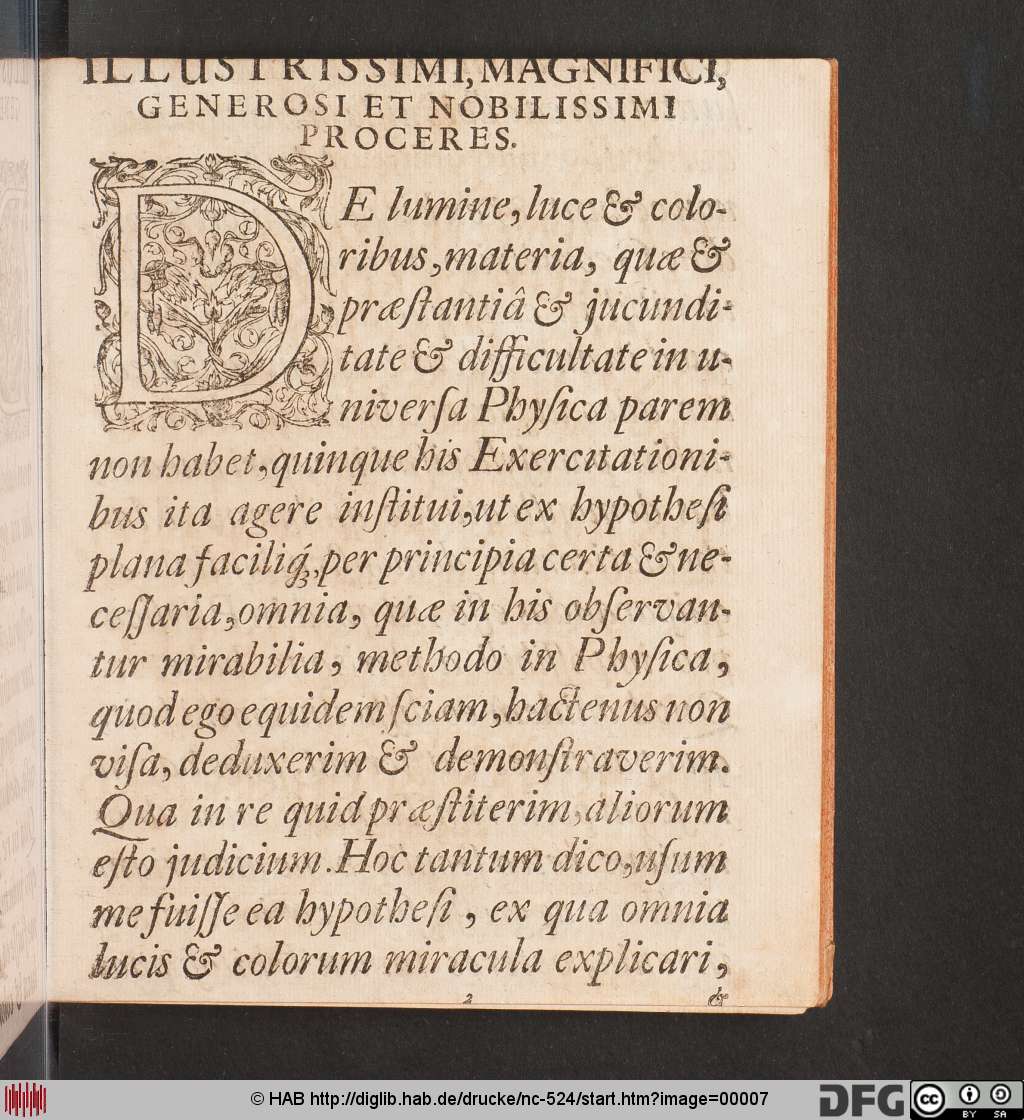 ILLUSTRISSIMI, MAGNIFICI,
GENEROSI ET NOBILISSIMI
PROCERES.
DE lumine, luce & colo-
ribus, materia, quæ &
præſtantiâ & jucundi-
tate & difficultate in u-
niverſa Phyſica parem
non habet, quinque his Exercitationi-
bus ita agere inſtitui, ut ex hypotheſi
plana faciliq́;, per principia certa & ne-
ceſſaria, omnia, quæ in his obſervan-
tur mirabilia, methodo in Phyſica,
quod ego equidem ſciam, hactenus non
viſa, deduxerim & demonſtraverim.
Qua in re quid præſtiterim, aliorum
eſto judicium. Hoc tantum dico, uſum
me fuiſſe ea hypotheſi, ex qua omnia
lucis & colorum miracula explicari,
2 &
© HAB http://diglib.hab.de/drucke/nc-524/start.htm?image=00007
DFG
cc BY SA